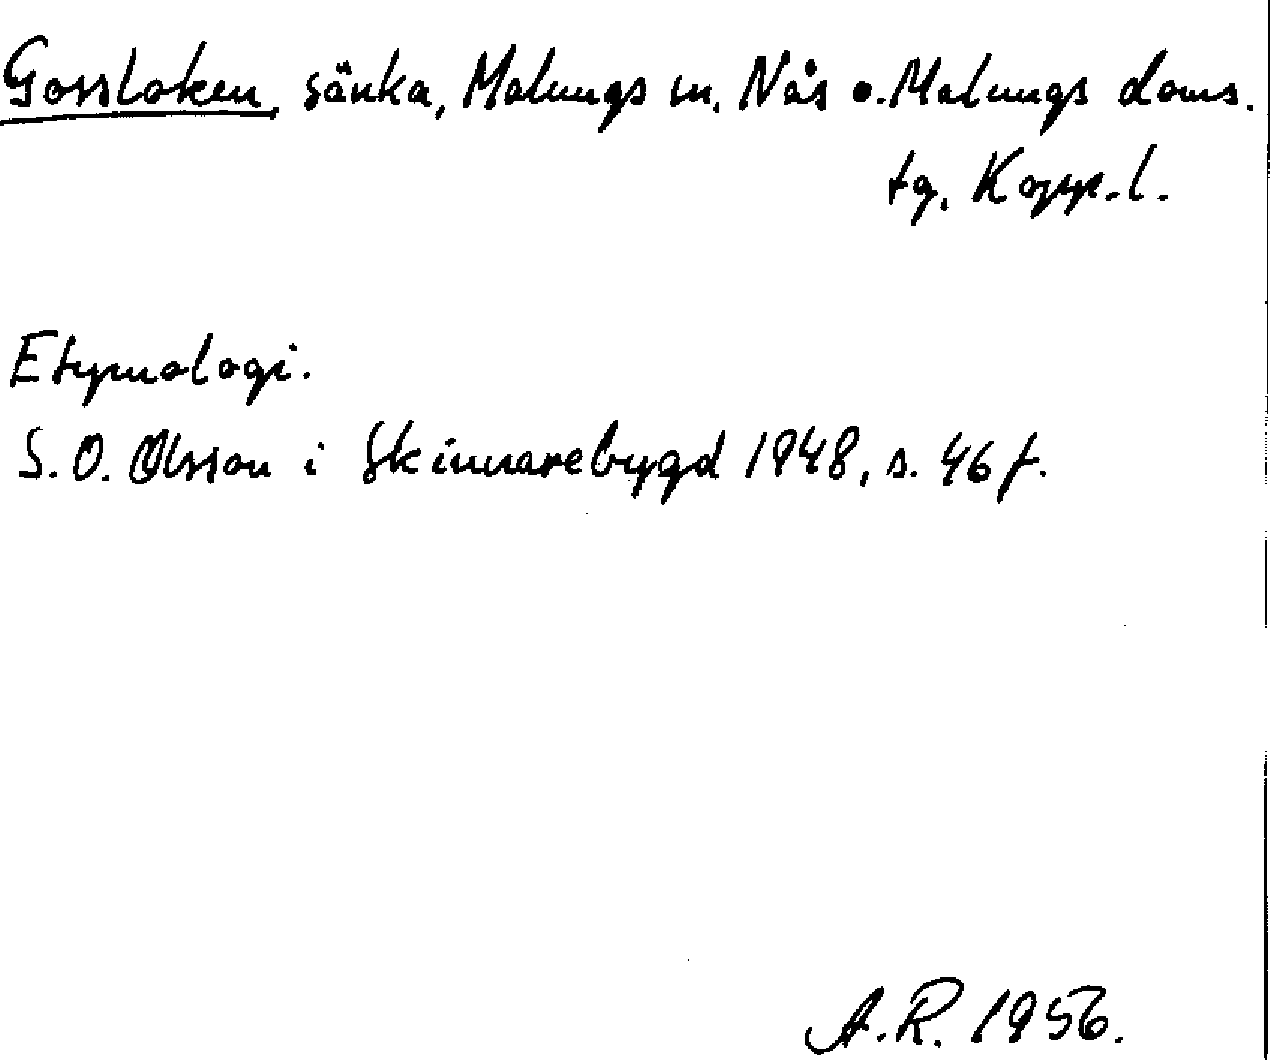 Gossloken, sänka, Malungs sn, Nås o. Malungs doms.
tg, Kopp.l.
Etymologi.
S. O. Olsson i Skinnarebygd 1948, s. 46 f.
A.R. 1956.